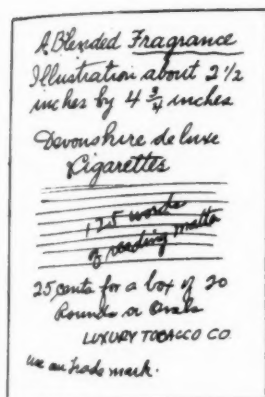 A Blended Fragrance
Illustration about 2 1/2
inches by 4 3/4 inches
Devonshire de luxe
Cigarettes
125 words
of reading matter
25 cents for a box of 20
Rounds or Ovals
LUXURY TOBACCO CO
use our trade mark.